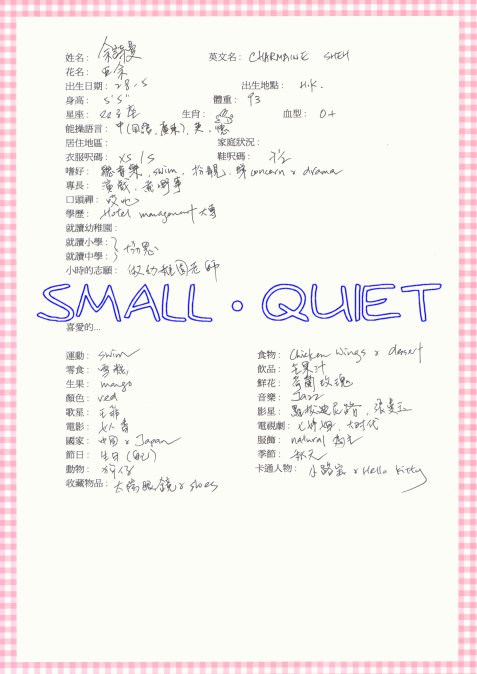 姓名： 佘詩曼 英文名： CHARMAINE SHEH
花名： 亞佘
出生日期： 28.5 出生地點： H.K.
身高： 5'5" 體重： 93
星座： 双子座 生肖： 血型： O+
能操語言： 中(國語,廣東), 英, 德
居住地區： 家庭狀況：
衣服呎碼： XS/S 鞋呎碼： 7½
嗜好： 聽音樂, swim, 扮靚, 睇concern & drama
專長： 演戲,
口頭禪： 哎吔
學歷： Hotel management 大專
就讀幼稚園：
就讀小學： } 協恩
就讀中學：
小時的志願： 做幼稚園老師
SMALL · QUIET
喜愛的...
運動： swim 食物： Chicken Wings & dessert
零食： 雪糕 飲品： 生果汁
生果： mango 鮮花： 荷蘭玫瑰
顏色： red 音樂： Jazz
歌星： 王菲 影星： 張曼玉
電影： 女人香 電視劇： 七姊妹, 大時代
國家： 中国 & Japan 服飾： natural
節日： 生日(自己) 季節： 秋天
動物： 狗仔 卡通人物： 小露宝 & Hello Kitty
收藏物品： 太陽眼鏡 & shoes